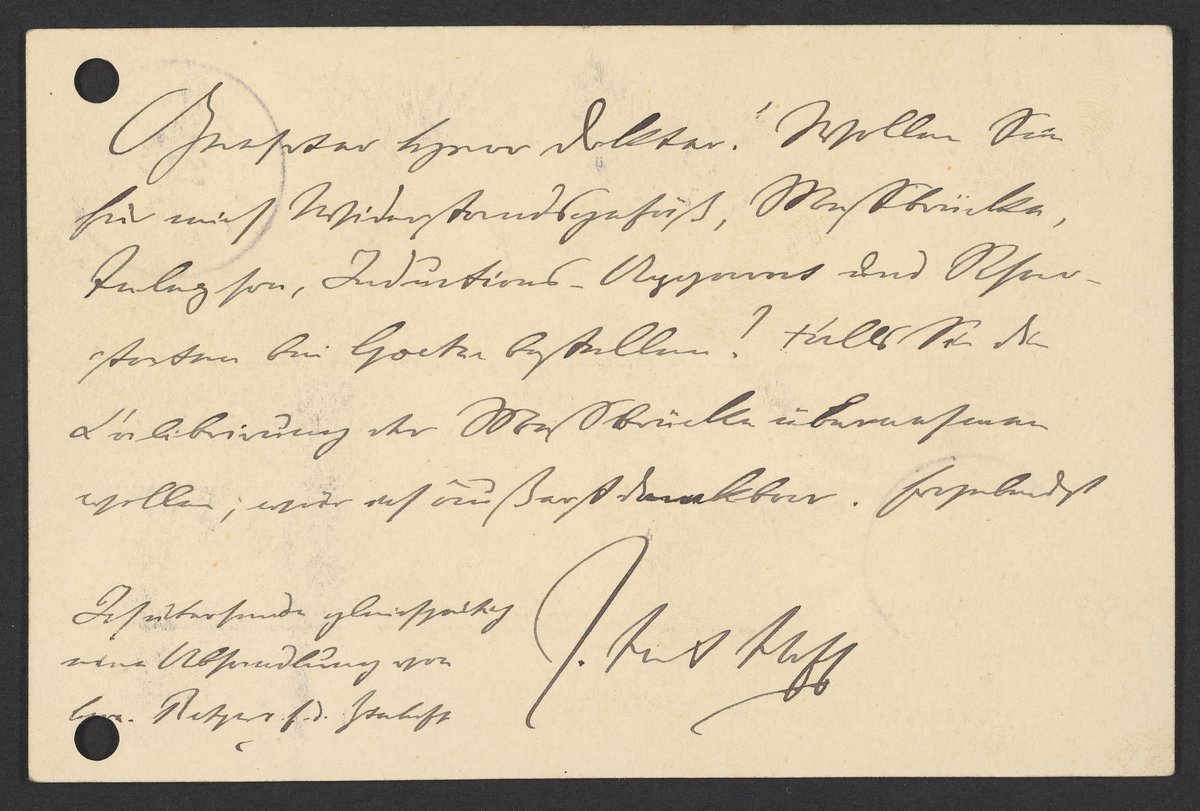 Geehrter Herr Doktor! Wollen Sie
für mich Widerstandsgefäß, Messbrücke,
Inductions-Apparat und Rheo-
staten bei Goetze bestellen! Falls Sie die
Calibrirung der Messbrücke übernehmen
wollen, wär ich äußerst dankbar. Ergebenst
J. H. van't Hoff
Ich übersende gleichzeitig
eine Abhandlung von
Hrn. Retgers f. d. Zeitschft